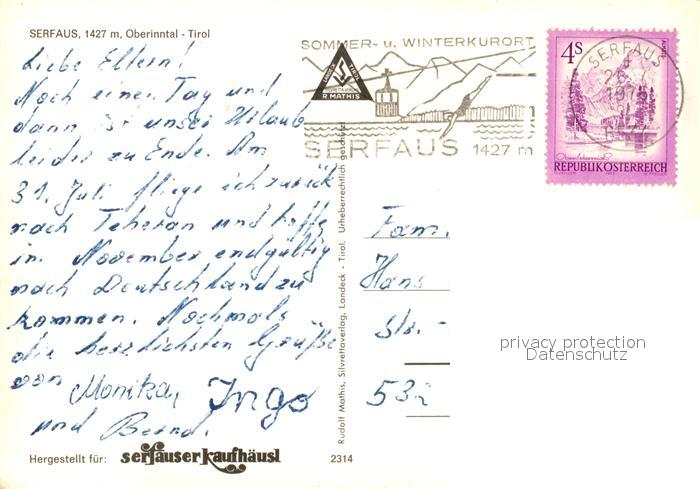 SERFAUS, 1427 m, Oberinntal - Tirol
Liebe Eltern!
Noch einen Tag und
dann ist unser Urlaub
leider zu Ende. Am
31. Juli fliege ich zurück
nach Teheran und hoffe
im November endgültig
nach Deutschland zu
kommen. Nochmals
die herzlichsten Grüße
von Monika, Ingo
und Bernd.
Hergestellt für: serfauser kaufhäusl
2314
Rudolf Mathis, Silvrettaverlag, Landeck - Tirol. Urheberrechtlich geschützt
SOMMER- u. WINTERKURORT
R. MATHIS
SERFAUS 1427 m
4S
SERFAUS
REPUBLIK ÖSTERREICH
Fam.
Hans
Str. -
53
privacy protection
Datenschutz